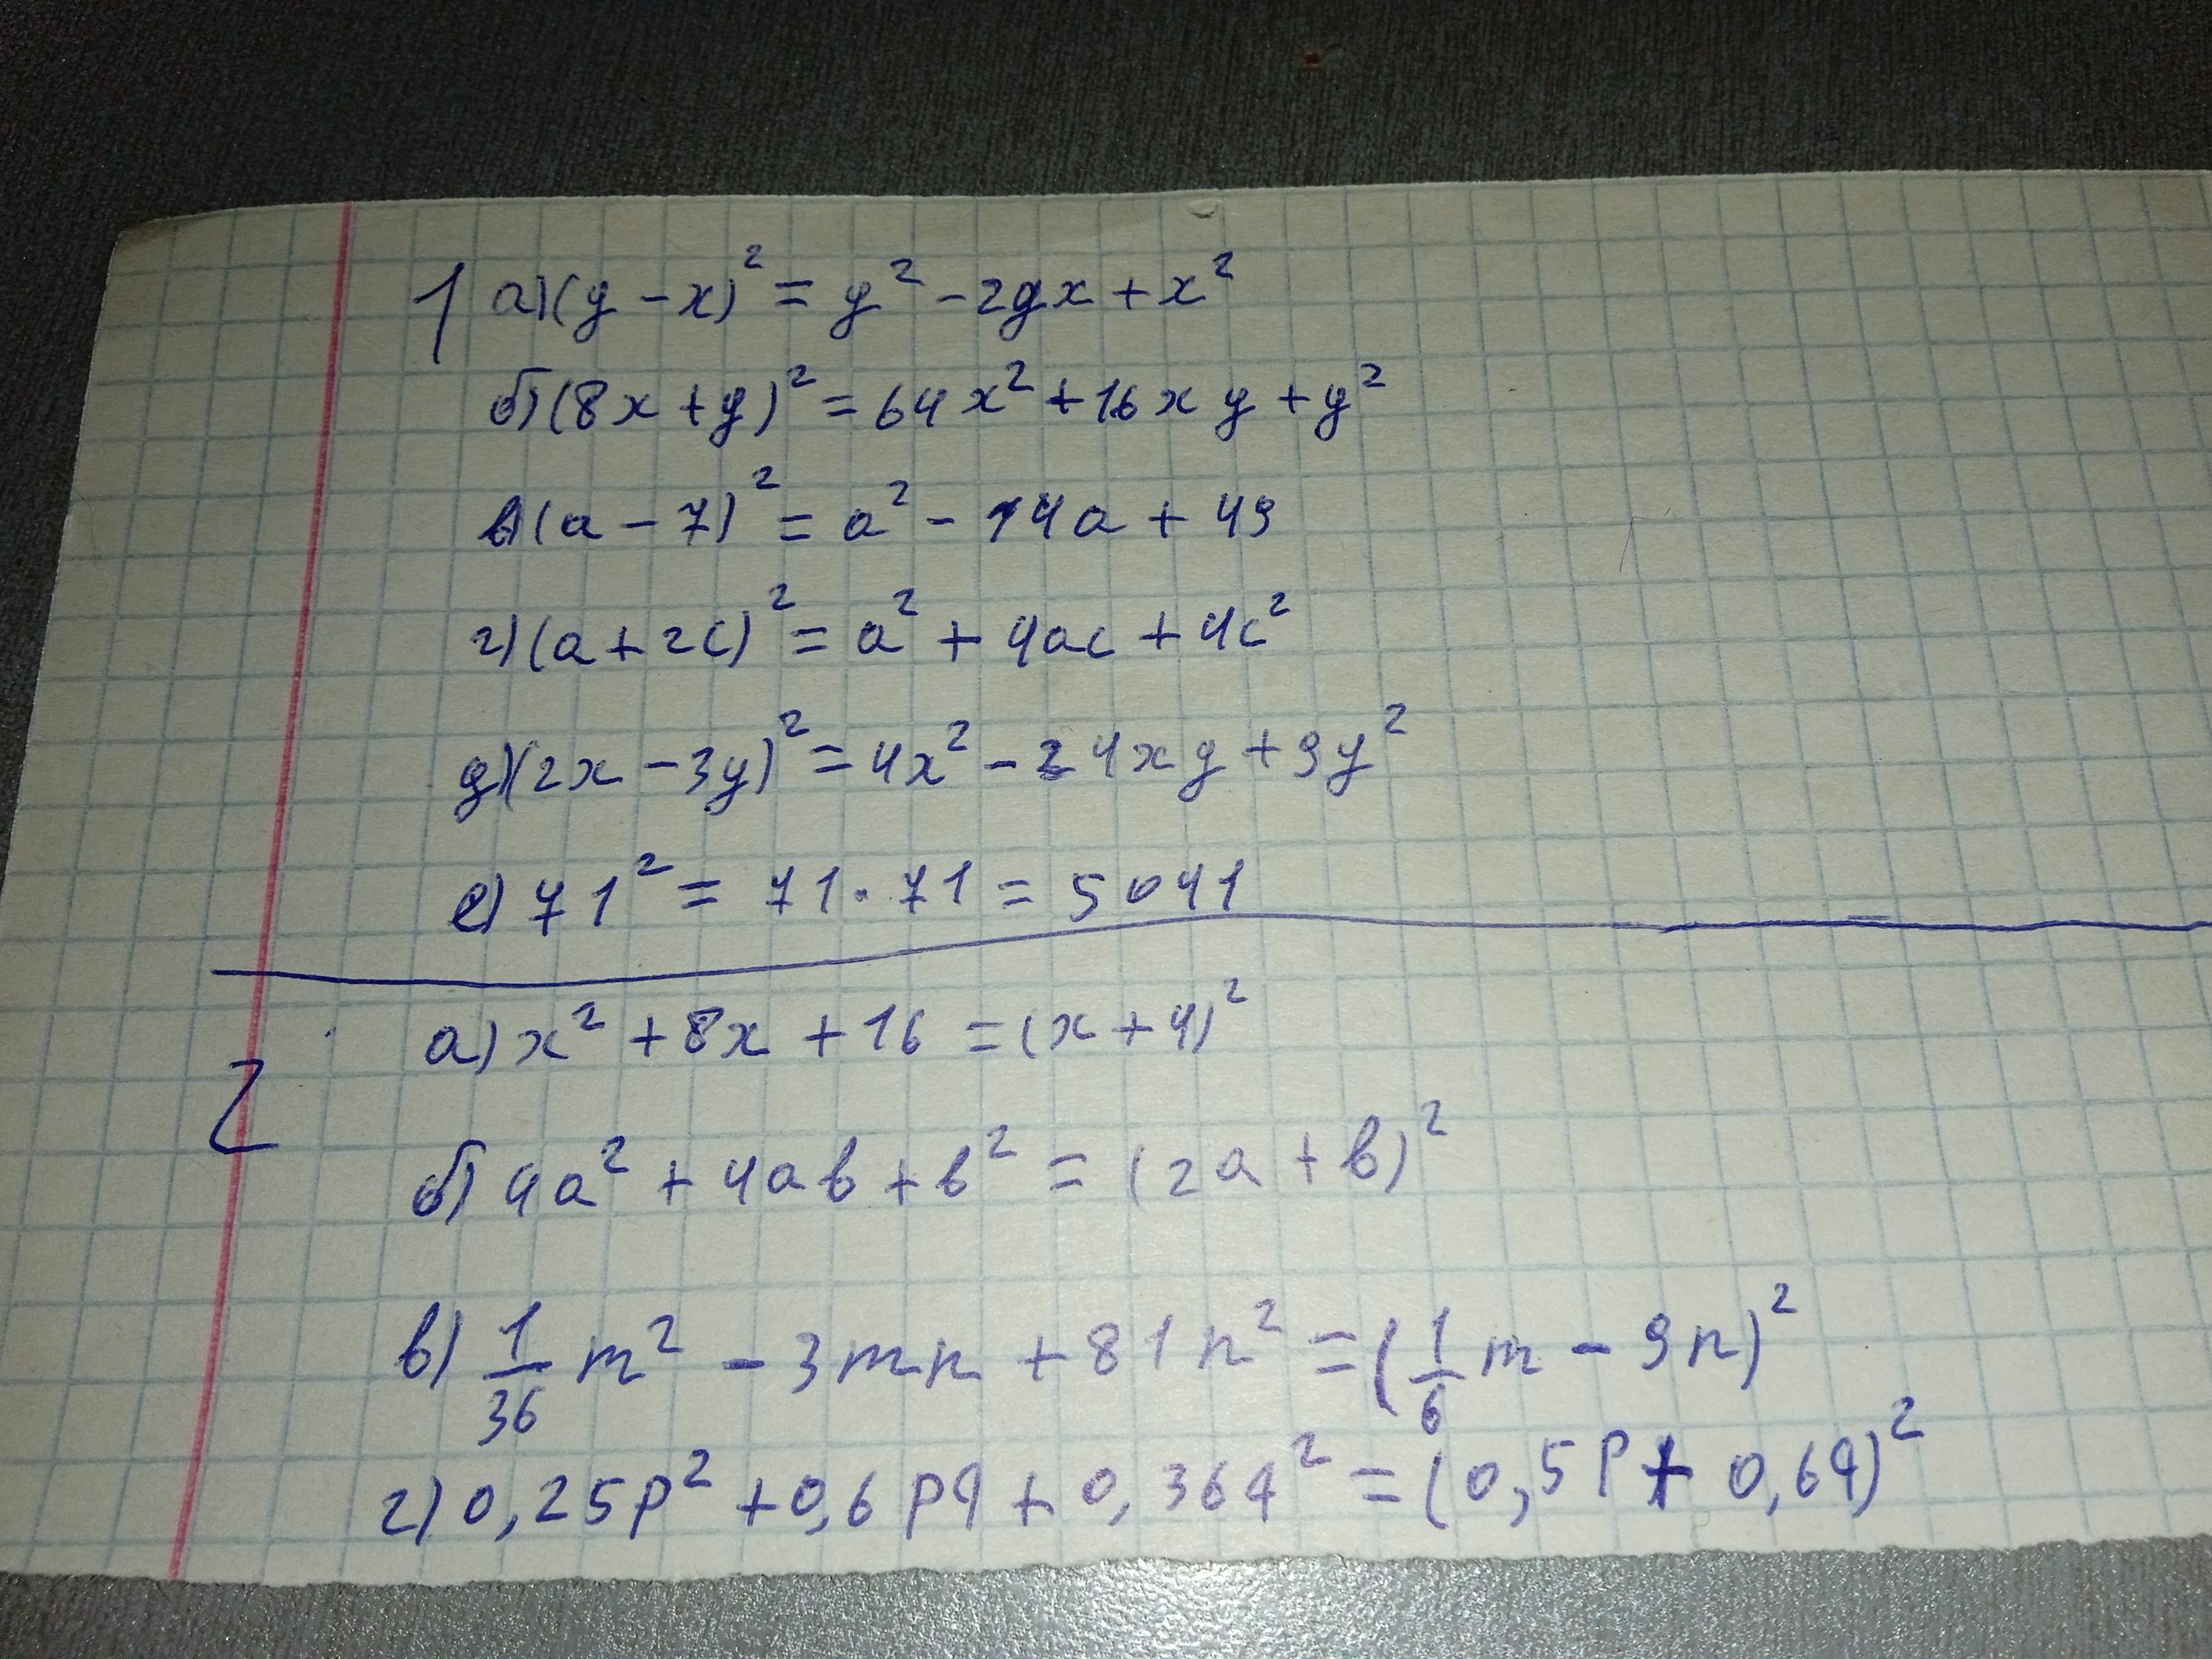 1 а) (y - x)² = y² - 2yx + x²
б) (8x + y)² = 64x² + 16xy + y²
в) (a - 7)² = a² - 14a + 49
г) (a + 2c)² = a² + 4ac + 4c²
д) (2x - 3y)² = 4x² - 24xy + 9y²
е) 71² = 71 · 71 = 5041
2 а) x² + 8x + 16 = (x + 4)²
б) 4a² + 4ab + b² = (2a + b)²
в) 1/36 m² - 3mn + 81n² = (1/6 m - 9n)²
г) 0,25p² + 0,6pq + 0,36q² = (0,5p + 0,6q)²